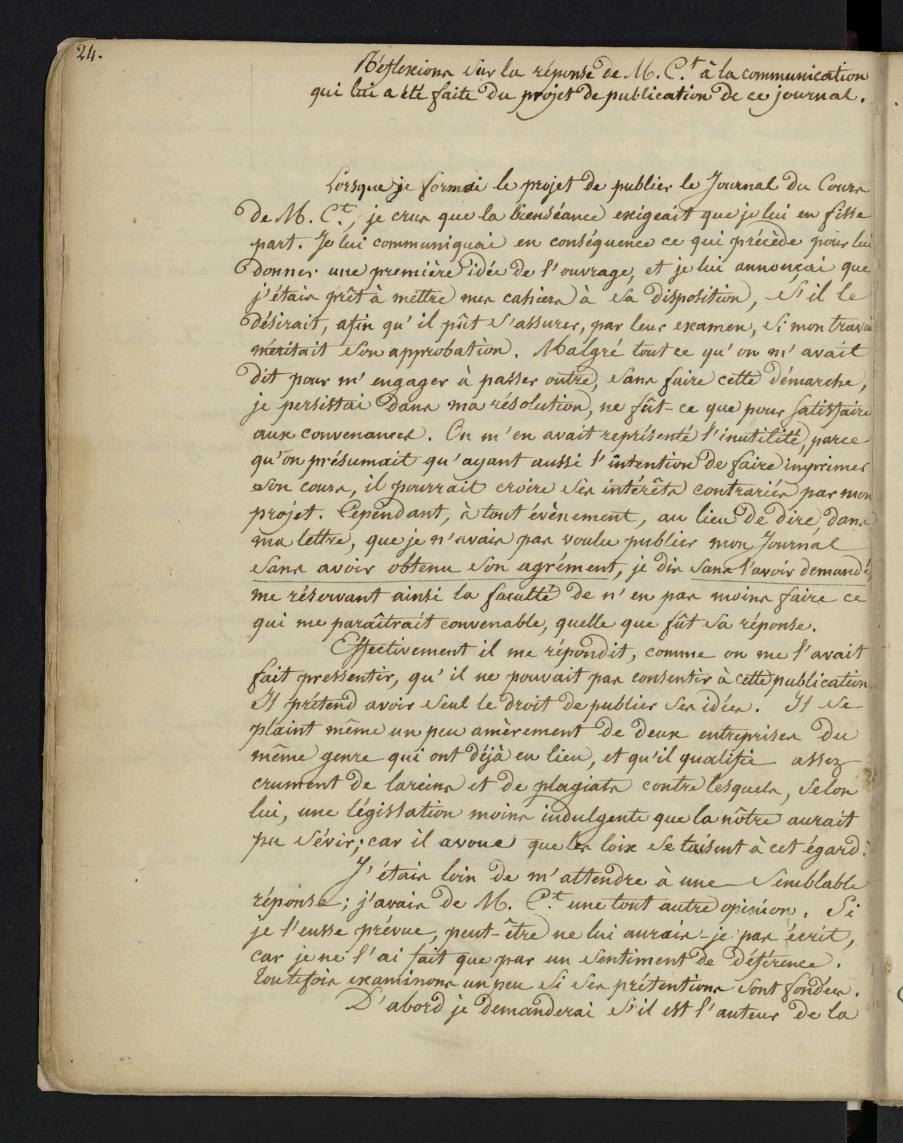 24.
Réflexions sur la réponse de M. C.t à la communication
qui lui a été faite du projet de publication de ce journal.
Lorsque je formai le projet de publier le Journal du Cours
de M. C.t, je crus que la bienséance exigeait que je lui en fisse
part. Je lui communiquai en conséquence ce qui précède pour lui
donner une première idée de l'ouvrage, et je lui annonçai que
j'étais prêt à mettre mes cahiers à sa disposition, s'il le
désirait, afin qu'il pût s'assurer, par leur examen, si mon travail
méritait son approbation. Malgré tout ce qu'on m'avait
dit pour m'engager à passer outre, sans faire cette démarche,
je persistai dans ma résolution, ne fût-ce que pour satisfaire
aux convenances. On m'en avait représenté l'inutilité, parce
qu'on présumait qu'ayant aussi l'intention de faire imprimer
son cours, il pourrait croire ses intérêts contrariés par mon
projet. Cependant, à tout évènement, au lieu de dire, dans
ma lettre, que je n'avais pas voulu publier mon Journal
sans avoir obtenu son agrément, je dis sans l'avoir demandé,
me réservant ainsi la faculté de n'en pas moins faire ce
qui me paraîtrait convenable, quelle que fût sa réponse.
Effectivement il me répondit, comme on me l'avait
fait pressentir, qu'il ne pouvait pas consentir à cette publication.
Il prétend avoir seul le droit de publier ses idées. Il se
plaint même un peu amèrement de deux entreprises du
même genre qui ont déjà eu lieu, et qu'il qualifie assez
crument de larcins et de plagiats contre lesquels, selon
lui, une législation moins indulgente que la nôtre aurait
pu sévir; car il avoue que les loix se taisent à cet égard.
J'étais loin de m'attendre à une semblable
réponse; j'avais de M. C.t une tout autre opinion. Si
je l'eusse prévue, peut-être ne lui aurais-je pas écrit,
car je ne l'ai fait que par un sentiment de déférence.
Toutefois examinons un peu si ses prétentions sont fondées.
D'abord je demanderai s'il est l'auteur de la